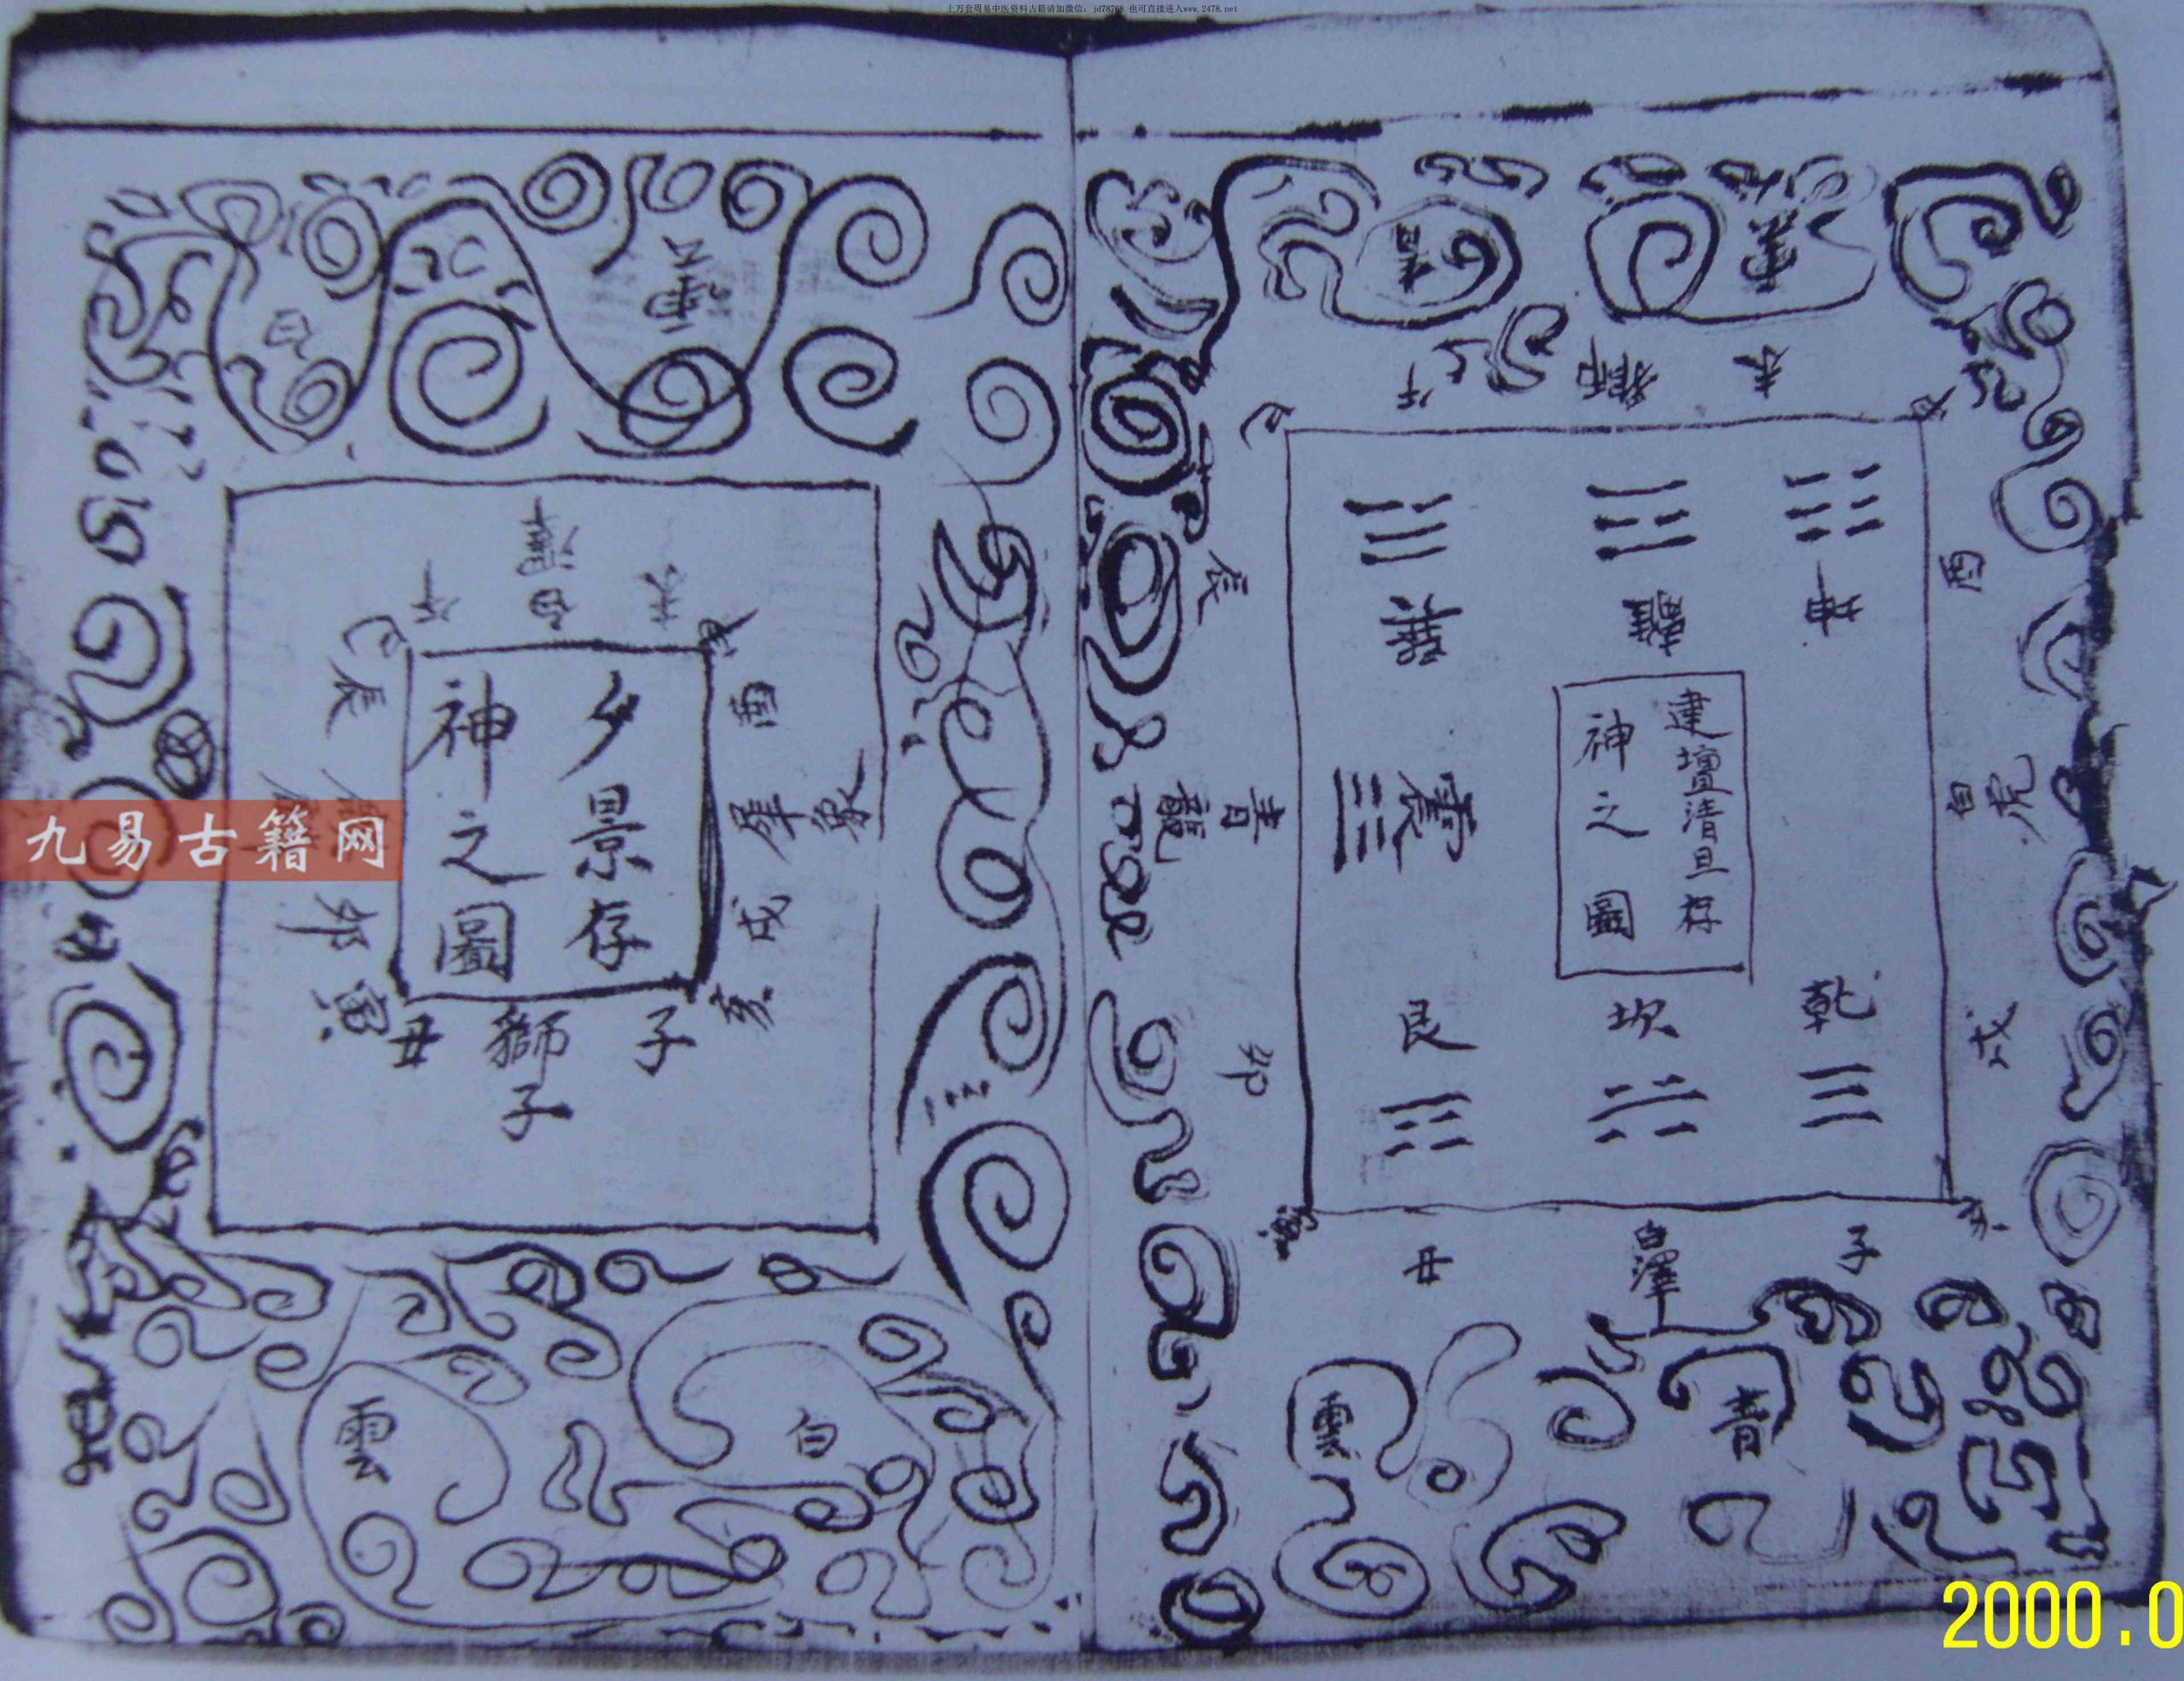 上万套周易中医资料古籍请加微信:jd78768 也可直接进入www.2478.net
建壇清旦存
神之圖
坤
離
巽
震
艮
坎
乾
巳
午
獅
未
申
酉
白虎
戌
亥
子
白澤
丑
寅
卯
青龍
辰
青
雲
青
夕景存
神之圖
巳
午
白澤
未
申
酉
犀象
戌
亥
子
獅子
丑
寅
卯
辰
白
雲
白
雲
九易古籍网
2000.0